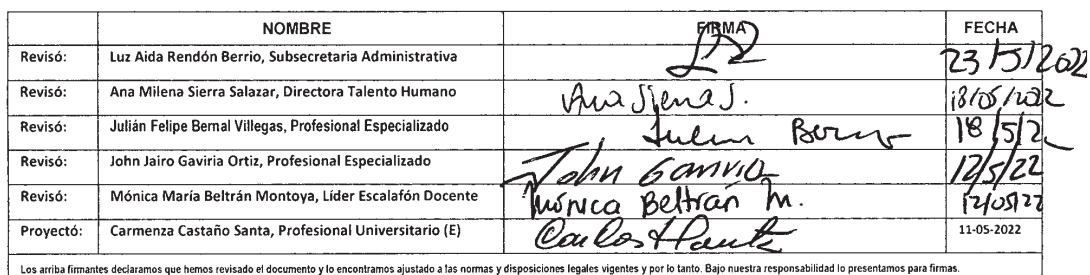 NOMBRE FIRMA FECHA
Revisó: Luz Aida Rendón Berrio, Subsecretaria Administrativa 23/5/2022
Revisó: Ana Milena Sierra Salazar, Directora Talento Humano Ana Sierra S. 18/05/2022
Revisó: Julián Felipe Bernal Villegas, Profesional Especializado Julian Bernal 18/5/2
Revisó: John Jairo Gaviria Ortiz, Profesional Especializado John Gaviria 12/5/22
Revisó: Mónica María Beltrán Montoya, Líder Escalafón Docente Mónica Beltrán M. 12/05/22
Proyectó: Carmenza Castaño Santa, Profesional Universitario (E) 11-05-2022
Los arriba firmantes declaramos que hemos revisado el documento y lo encontramos ajustado a las normas y disposiciones legales vigentes y por lo tanto. Bajo nuestra responsabilidad lo presentamos para firmas.